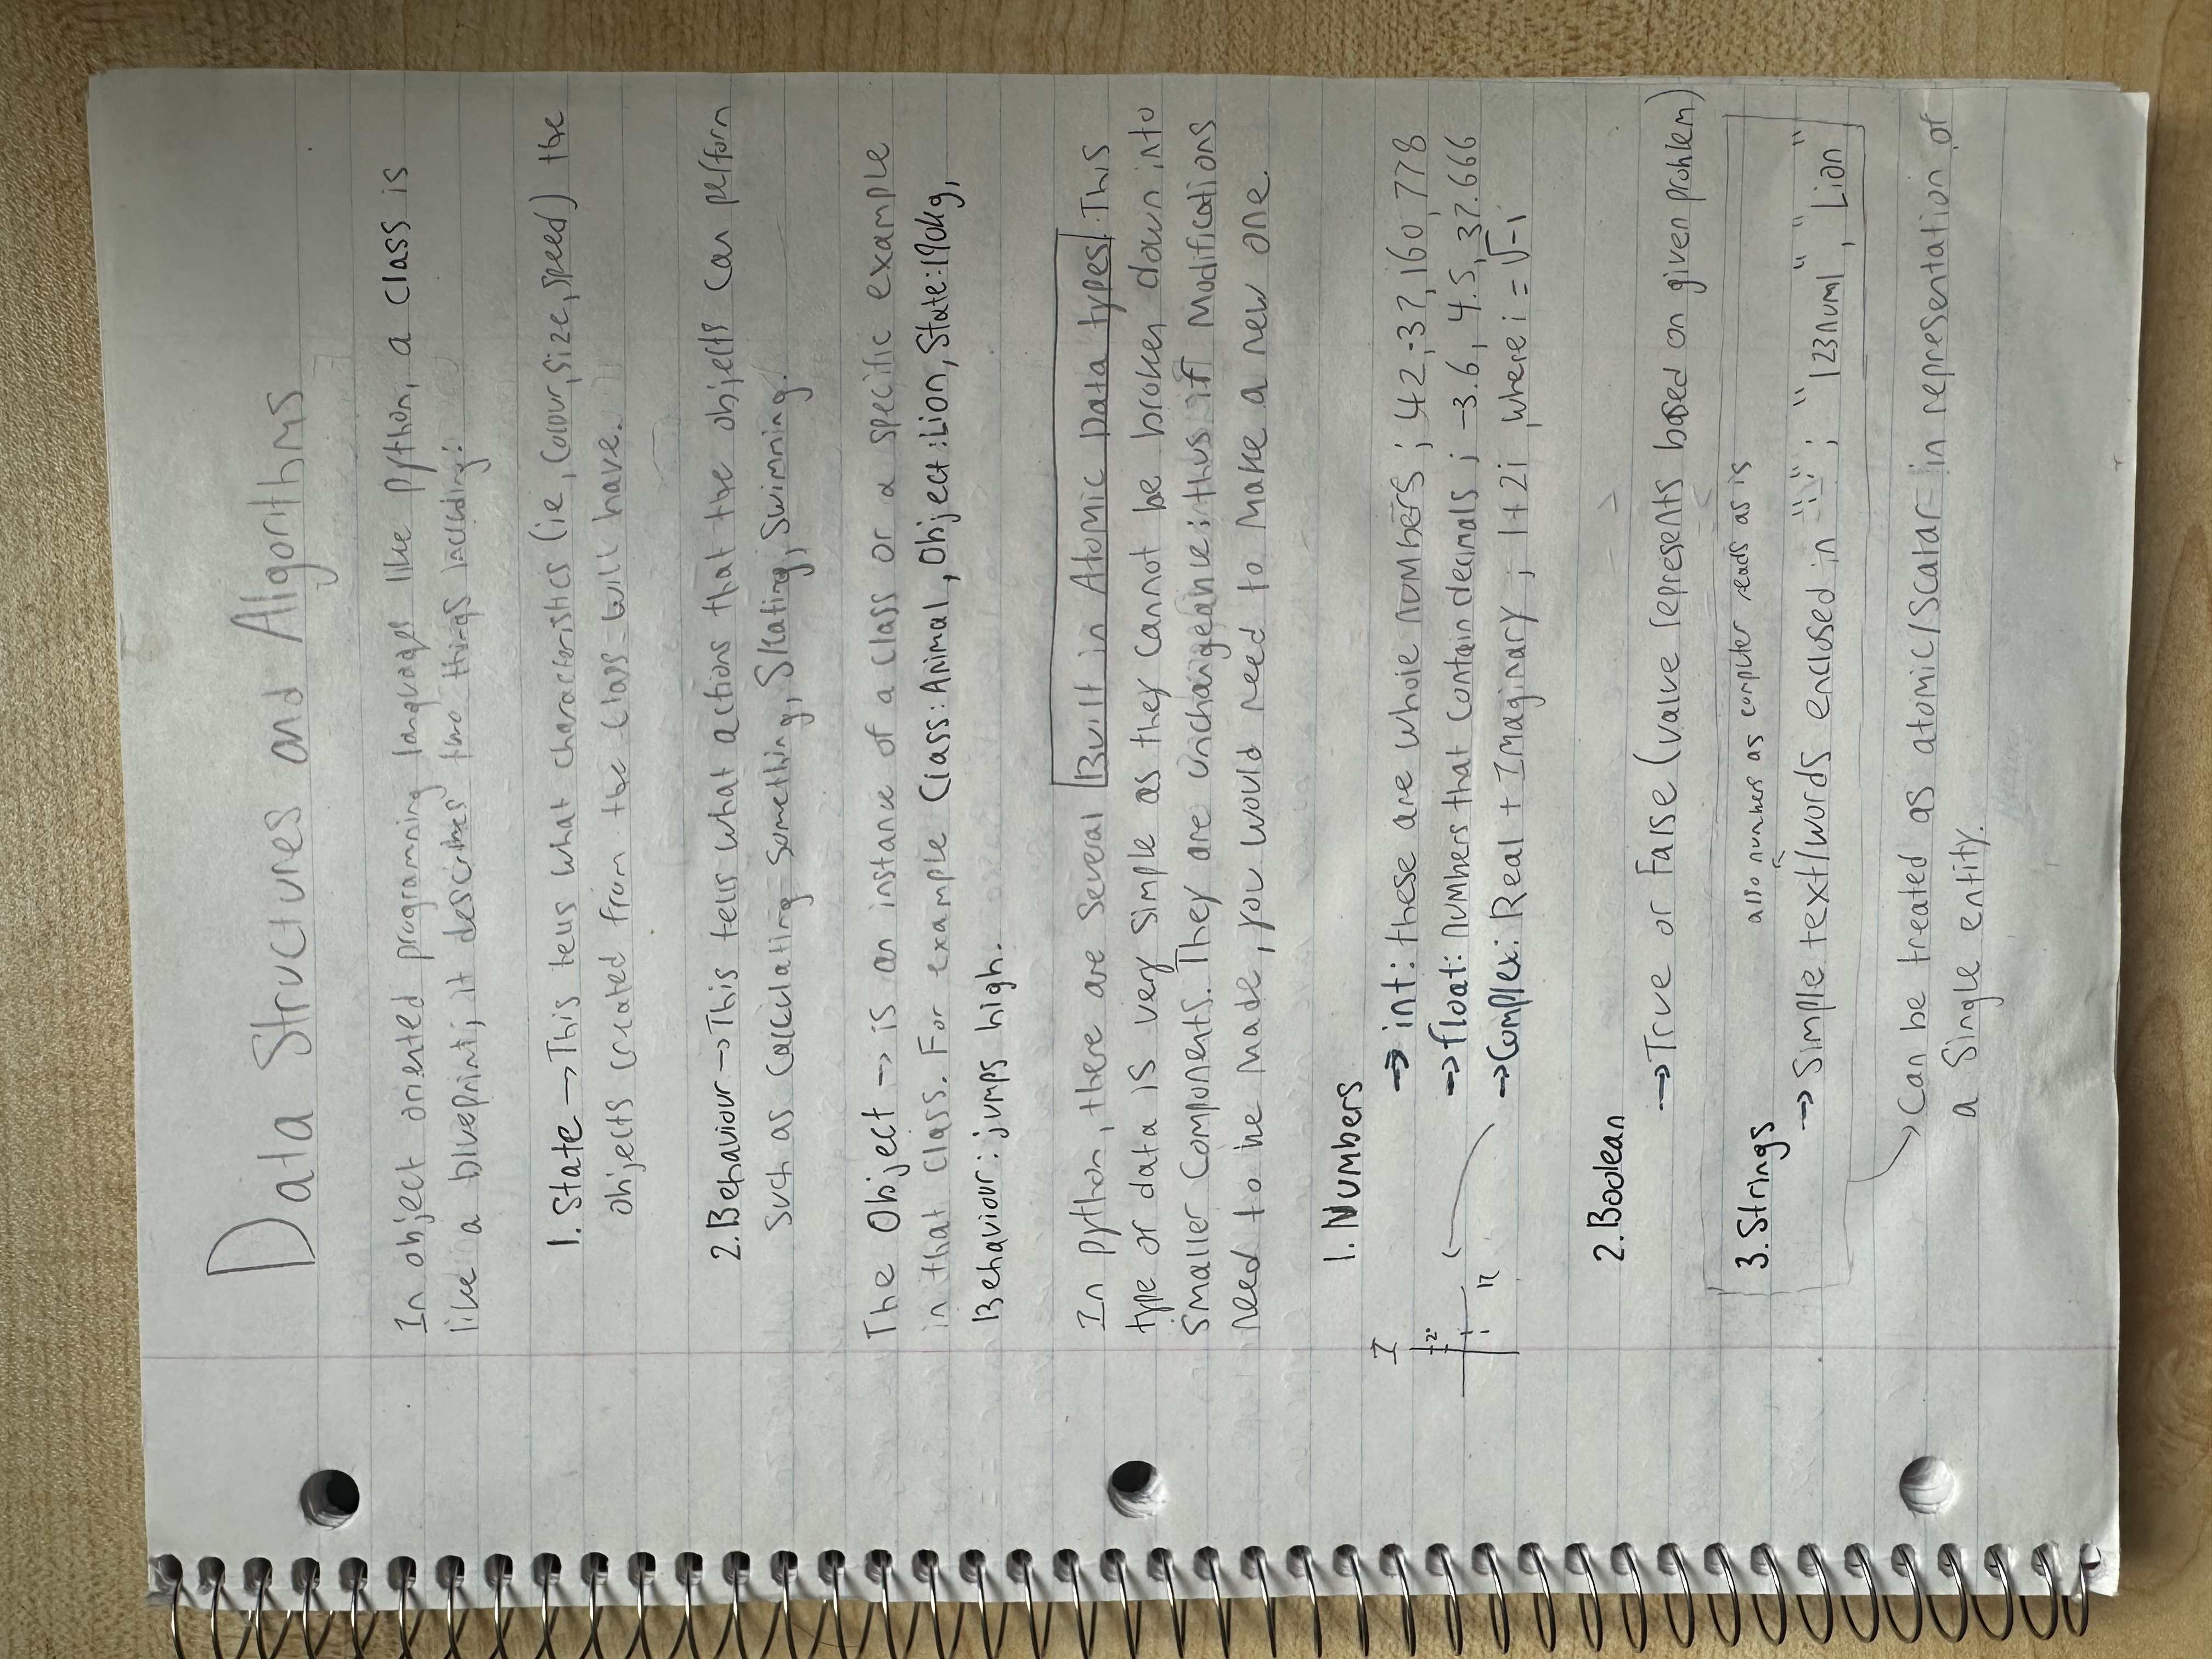 Data Structures and Algorithms
In object oriented programming languages like python, a class is
like a blueprint; it describes two things including:
1. State → This tells what characteristics (ie, Colour, size, speed) the
objects created from the class will have.
2. Behaviour → This tells what actions that the objects can perform
such as calculating something, Skating, Swimming.
The Object → is an instance of a class or a specific example
in that class. For example Class: Animal, Object: Lion, State: 190kg,
Behaviour: jumps high.
In python, there are several Built in Atomic Data types. This
type of data is very simple as they cannot be broken down into
smaller components. They are unchangeable; thus if modifications
need to be made, you would need to make a new one.
1. Numbers
→ int: these are whole numbers; 42, -37, 160, 778
→ float: numbers that contain decimals; -3.6, 4.5, 37.666
→ Complex: Real + Imaginary; 1+2i, where i = √-1
I
2
1
R
2. Boolean
→ True or False (value represents based on given problem)
3. Strings
also numbers as computer reads as is
→ Simple text/words enclosed in " "; "123num1", "Lion"
Can be treated as atomic/scalar in representation of
a single entity.